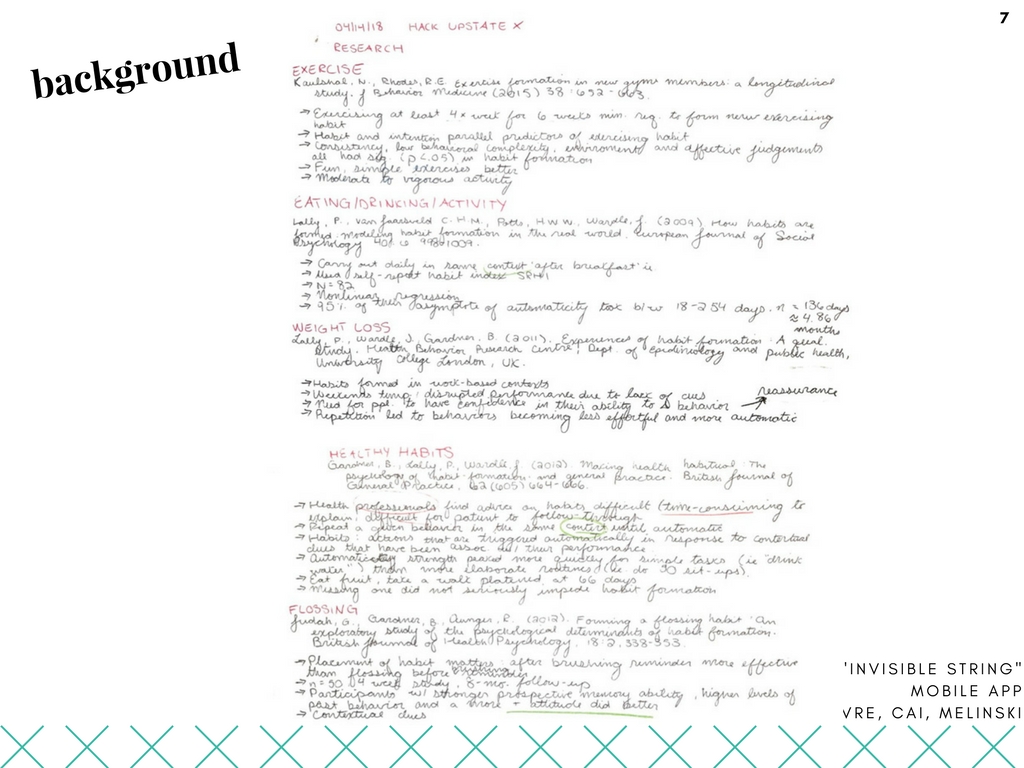 7
background
04/14/18 HACK UPSTATE X
RESEARCH
EXERCISE
Kaulshal, N., Rhodes, R.E. Exercise formation in new gym members: a longitudinal
study. J Behavior Medicine (2015) 38: 652-663.
→ Exercising at least 4x week for 6 weeks min. req. to form new exercising
habit
→ Habit and intention parallel predictors of exercising habit
→ Consistency, low behavioral complexity, environment, and affective judgements
all had sig. (p<.05) in habit formation
→ Fun, simple exercises better
→ Moderate to vigorous activity
EATING/DRINKING/ACTIVITY
Lally, P., van C.H.M., Potts, H.W.W., Wardle, J. (2009) How habits are
formed: modeling habit formation in the real world. European Journal of Social
Psychology 40: 6
→ Carry out daily in same context 'after breakfast' ie
→ Used self-report habit index SRHI
→ N=82
→ Nonlinear regression
→ 95% of their asymptote of automaticity took b/w 18-254 days. n = 136 days
≈ 4.86
months
WEIGHT LOSS
Lally, P., Wardle, J., Gardner, B. (2011). Experiences of habit formation: A qual.
study. Health Behavior Research Centre, Dept. of Epidimiology and public health,
University College London, UK.
→ Habits formed in work-based contexts
→ Weekends temp. disrupted performance due to lack of cues
→ Need for ppl. to have confidence in their ability to Δ behavior
reassurance
→ Repetition led to behaviors becoming less effortful and more automatic
HEALTHY HABITS
Gardner, B., Lally, P., Wardle, J. (2012). Making health habitual: The
psychology of 'habit-formation' and general practice. British Journal of
General Practice, 62(605) 664-666.
→ Health professionals find advice on habits difficult (time-consuming to
explain, difficult for patient to follow-through
→ Repeat a given behavior in the same context until automatic
→ Habits: actions that are triggered automatically in response to contextual
cues that have been assoc. w/ their performance
→ strength peaked more quickly for simple tasks (ie "drink
water,") than more elaborate routines (ie do 50 sit-ups).
→ Eat fruit, take a walk plateued at 66 days
→ Missing one did not seriously impede habit formation
FLOSSING
Judah, G., Gardner, B., Aunger, R. (2012). Forming a flossing habit: An
exploratory study of the psychological determinants of habit formation.
British Journal of Health Psychology. 18:2, 338-353.
→ Placement of habit matters: after brushing reminder more effective
than flossing before
→ n=50, 4 week study, 8-mo. follow-up
→ Participants w/ stronger prospective memory ability, higher levels of
past behavior and a more + attitude did better
→ Contextual cues
"INVISIBLE STRING"
MOBILE APP
VRE, CAI, MELINSKI